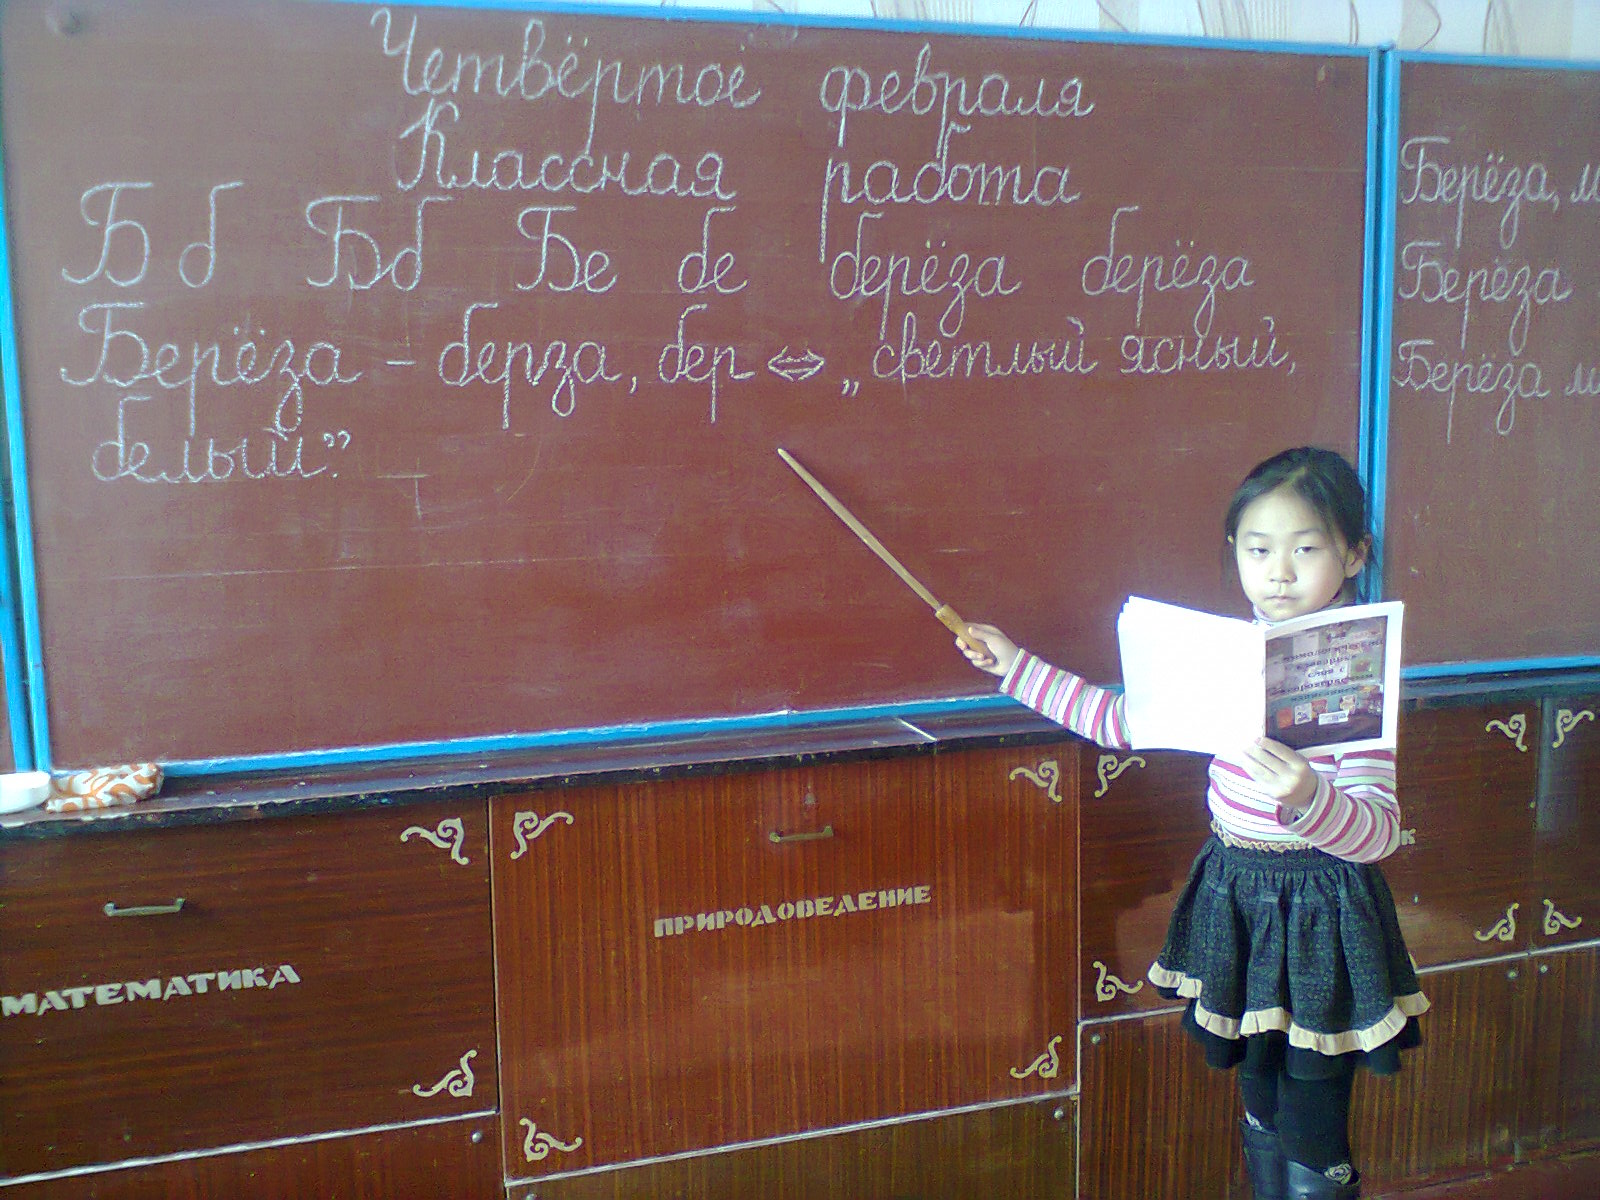 Четвёртое февраля
Классная работа
Б б Бб Бе бе берёза берёза
Берёза – берза, бер ⇔ „светлый ясный,
белый”.
Берёза, м
Берёза
Берёза м
МАТЕМАТИКА
ПРИРОДОВЕДЕНИЕ
К